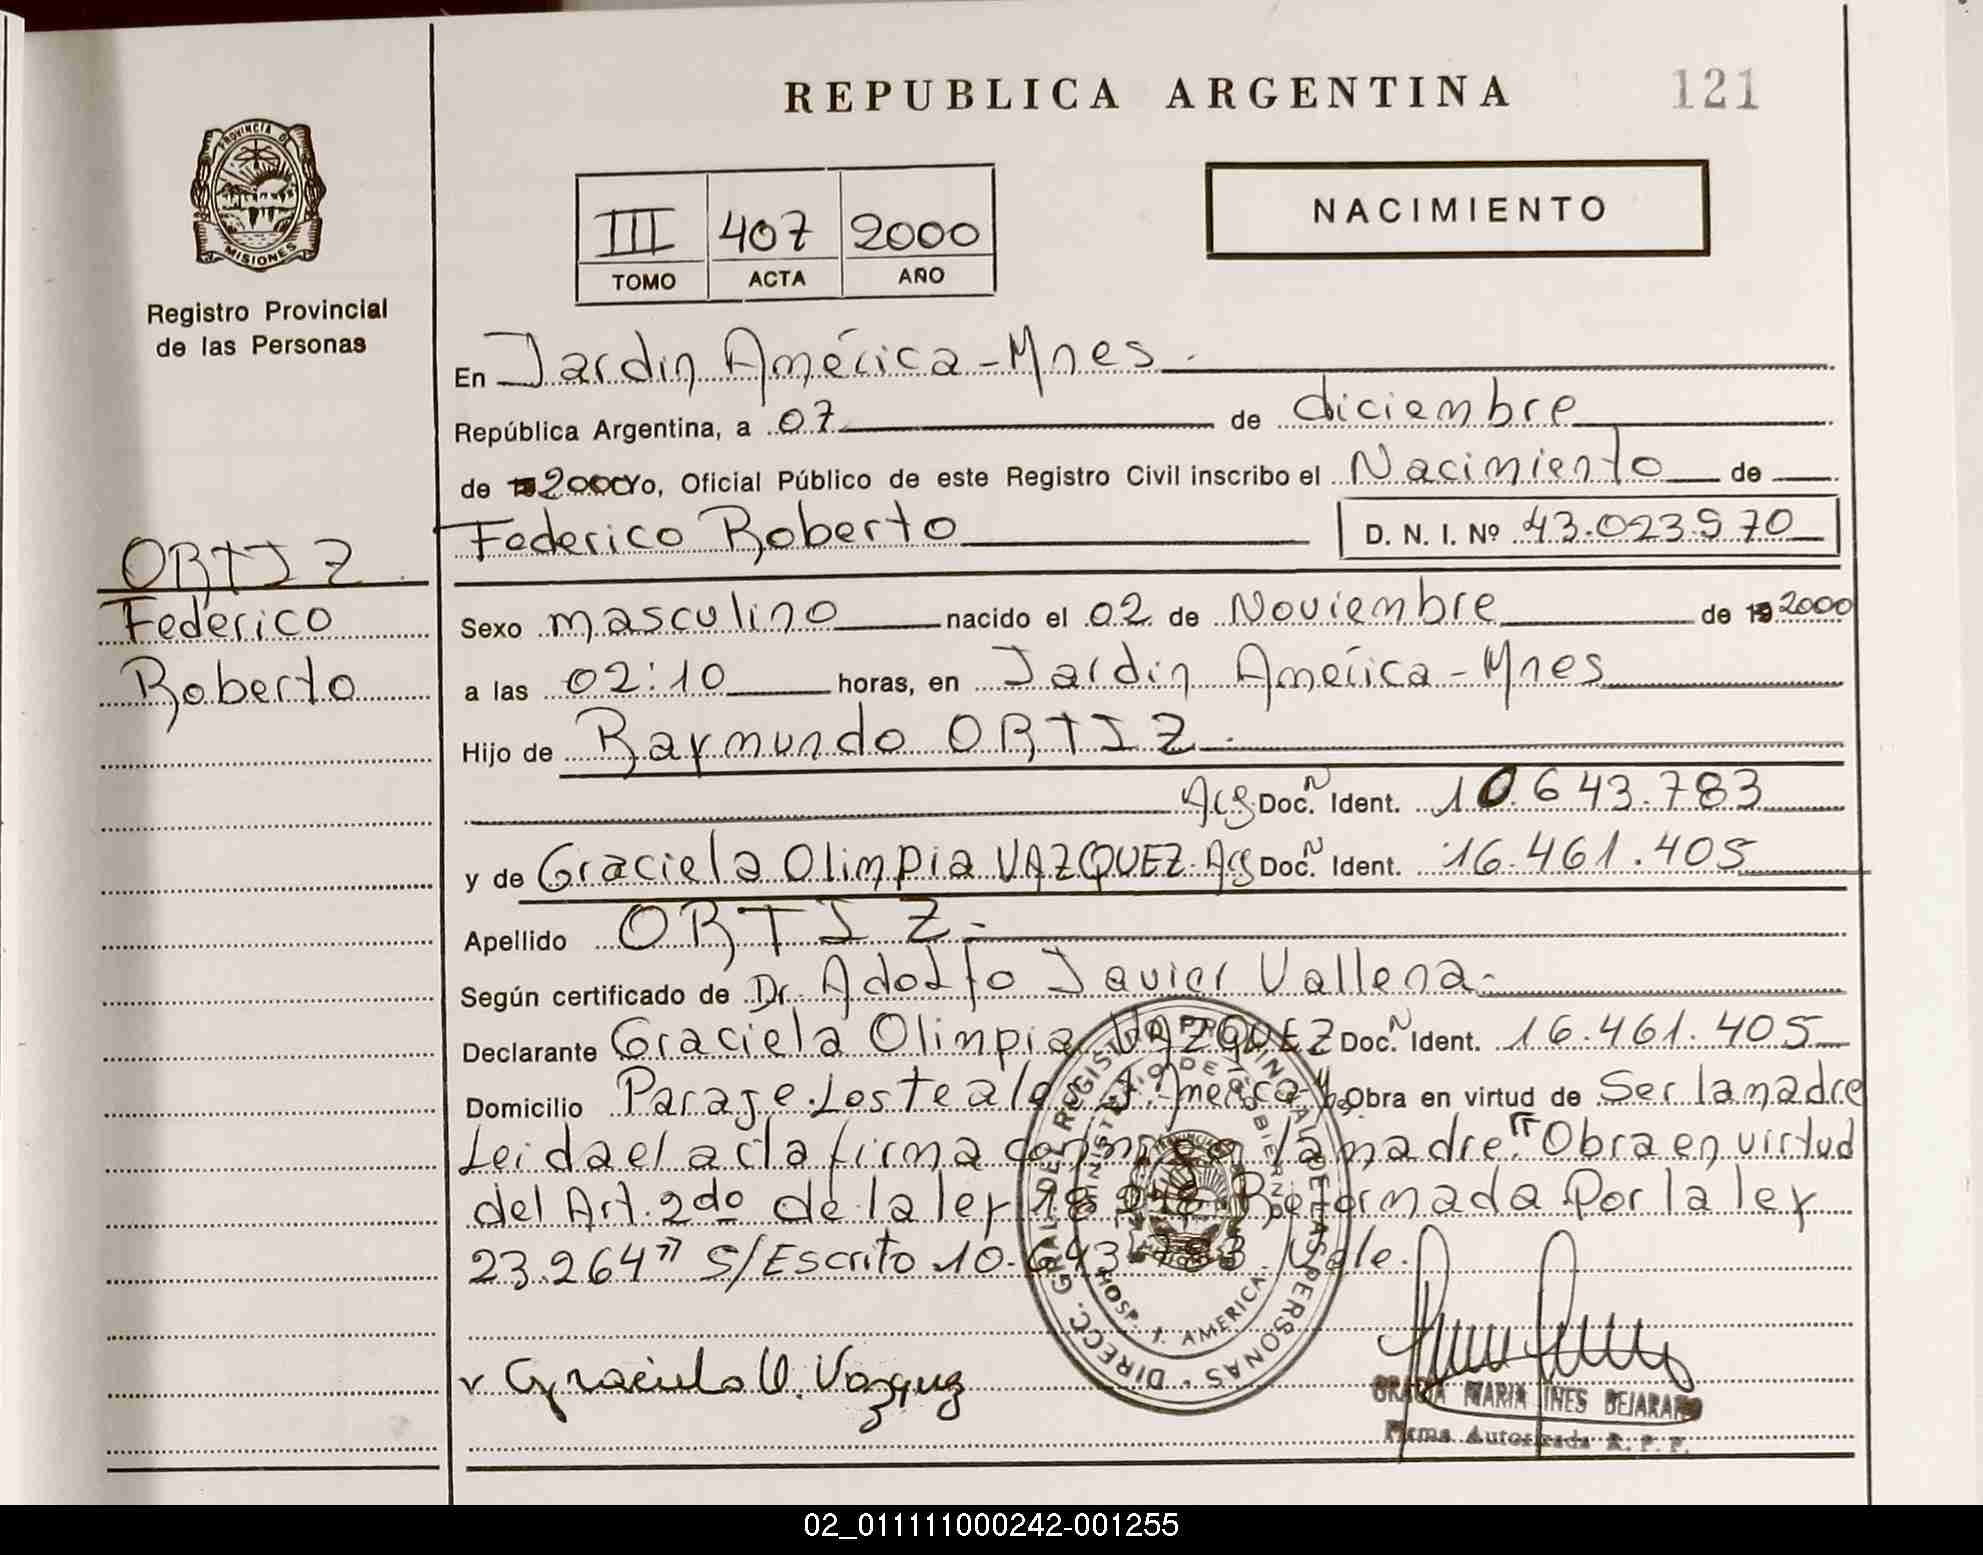 REPUBLICA ARGENTINA
121
PROVINCIA DE
MISIONES
Registro Provincial
de las Personas
III 407 2000
TOMO ACTA AÑO
NACIMIENTO
En Jardin América - Mnes.
República Argentina, a 07 de diciembre
de 2000 Yo, Oficial Público de este Registro Civil inscribo el Nacimiento de
Federico Roberto D. N. I. Nº 43.023.970
ORTIZ
Federico
Roberto
Sexo masculino nacido el 02 de Noviembre de 19 2000
a las 02:10 horas, en Jardin América - Mnes
Hijo de Raymundo ORTIZ.
Arg Doc. N Ident. 10.643.783
y de Graciela Olimpia VAZQUEZ. Arg Doc. N Ident. 16.461.405
Apellido ORTIZ -
Según certificado de Dr. Adolfo Javier Vallena.
Declarante Graciela Olimpia VAZQUEZ Doc. N Ident. 16.461.405
Domicilio Paraje Los teales J. America Obra en virtud de Ser la madre
Leida el acta firma conmigo la madre. "Obra en virtud
del Art. 2do de la ley 18.248 Reformada Por la ley
23.264" S/Escrito 10.643.783. Vale.
DIRECC. GRAL. DEL REGISTRO PROVINCIAL DE LAS PERSONAS
MINISTERIO DE GOBIERNO
HOSP. J. AMERICA
Graciela O. Vazquez
GRACIA MARIA INES BEJARANO
Firma Autorizada R. P. P.
02_011111000242-001255